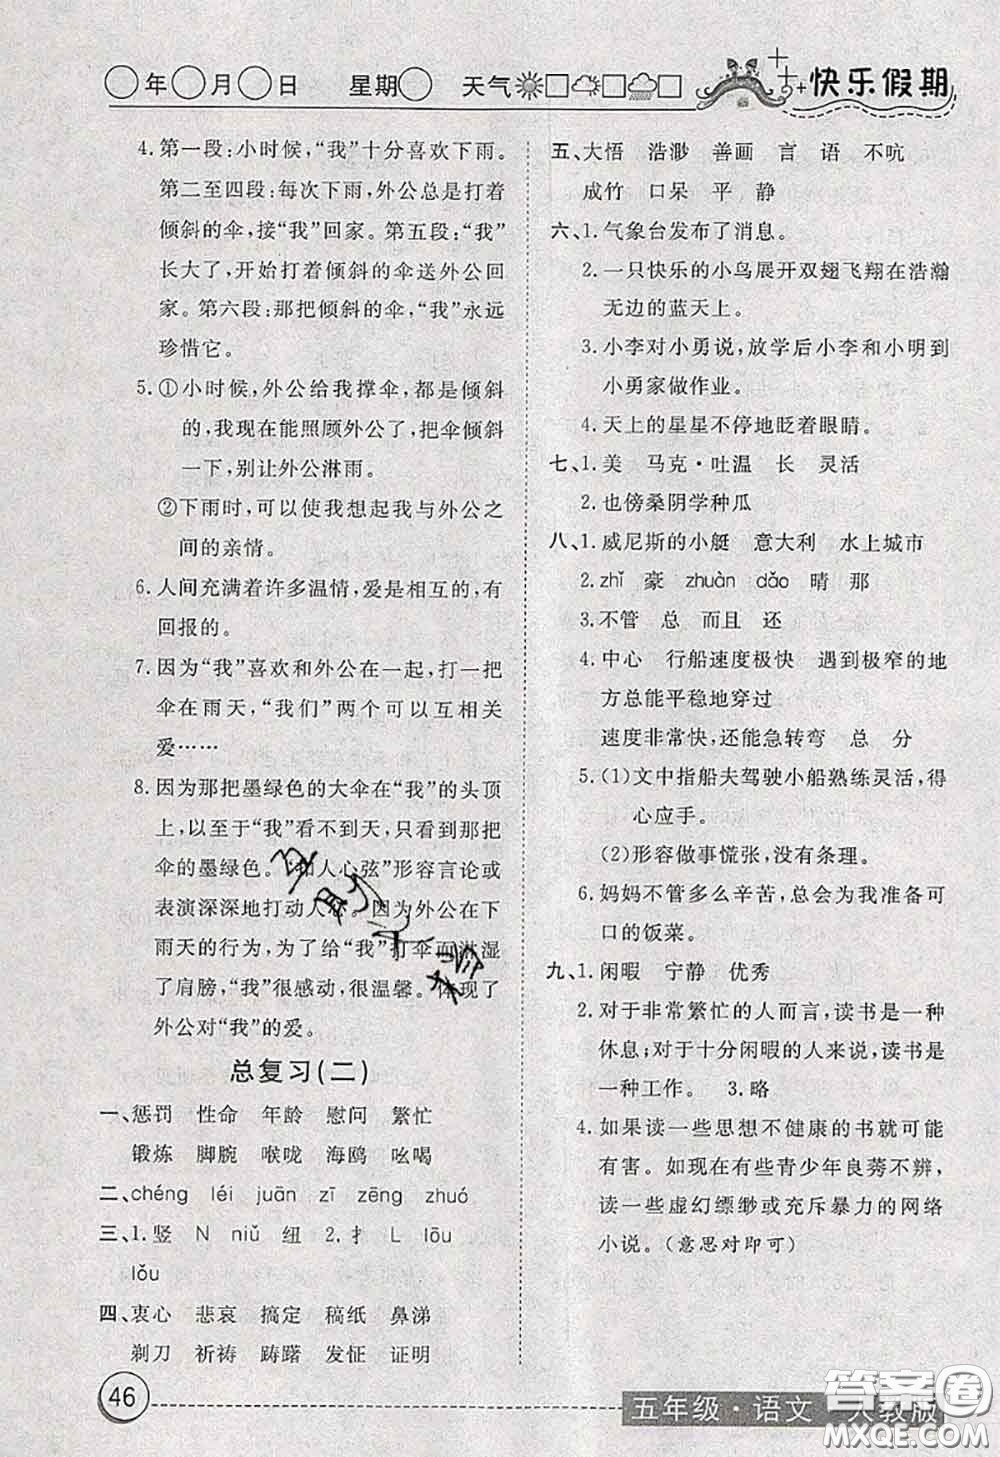 ○年○月○日 星期○ 天气 □ □ □
快乐假期
4.第一段:小时候,“我”十分喜欢下雨。
第二至四段:每次下雨,外公总是打着
倾斜的伞,接“我”回家。第五段:“我”
长大了,开始打着倾斜的伞送外公回
家。第六段:那把倾斜的伞,“我”永远
珍惜它。
5.①小时候,外公给我撑伞,都是倾斜
的,我现在能照顾外公了,把伞倾斜
一下,别让外公淋雨。
②下雨时,可以使我想起我与外公之
间的亲情。
6.人间充满着许多温情,爱是相互的,有
回报的。
7.因为“我”喜欢和外公在一起,打一把
伞在雨天,“我们”两个可以互相关
爱……
8.因为那把墨绿色的大伞在“我”的头顶
上,以至于“我”看不到天,只看到那把
伞的墨绿色。“扣人心弦”形容言论或
表演深深地打动人心。因为外公在下
雨天的行为,为了给“我”打伞而淋湿
了肩膀,“我”很感动,很温馨。体现了
外公对“我”的爱。
总复习(二)
一、惩罚 性命 年龄 慰问 繁忙
锻炼 脚腕 喉咙 海鸥 吆喝
二、chéng léi juān zī zēng zhuó
三、1.竖 N niǔ 纽 2.扌 L lōu
lǒu
四、衷心 悲哀 搞定 稿纸 鼻涕
剃刀 祈祷 踌躇 发怔 证明
五、大悟 浩渺 善画 言 语 不吭
成竹 口呆 平 静
六、1.气象台发布了消息。
2.一只快乐的小鸟展开双翅飞翔在浩瀚
无边的蓝天上。
3.小李对小勇说,放学后小李和小明到
小勇家做作业。
4.天上的星星不停地眨着眼睛。
七、1.美 马克·吐温 长 灵活
2.也傍桑阴学种瓜
八、1.威尼斯的小艇 意大利 水上城市
2.zhǐ 豪 zhuàn dǎo 晴 那
3.不管 总 而且 还
4.中心 行船速度极快 遇到极窄的地
方总能平稳地穿过
速度非常快,还能急转弯 总 分
5.(1)文中指船夫驾驶小船熟练灵活,得
心应手。
(2)形容做事慌张,没有条理。
6.妈妈不管多么辛苦,总会为我准备可
口的饭菜。
九、1.闲暇 宁静 优秀
2.对于非常繁忙的人而言,读书是一种
休息;对于十分闲暇的人来说,读书是
一种工作。 3.略
4.如果读一些思想不健康的书就可能
有害。如现在有些青少年良莠不辨,
读一些虚幻缥缈或充斥暴力的网络
小说。(意思对即可)
46
五年级·语文 人教版
答案圈
MXQE.COM